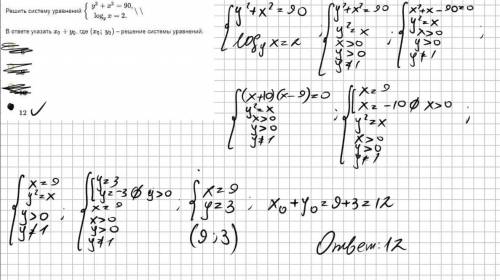 Решить систему уравнений { y² + x² = 90, \\
log_y x = 2.
В ответе укажите x₀ + y₀, где (x₀; y₀) – решение системы уравнений.
12 ✓
{ y²+x²=90
log_y x=2 ;
{ y²+x²=90
y²=x
x>0
y>0
y≠1 ;
{ x²+x-90=0
y²=x
x>0
y>0
y≠1 ;
{ (x+10)(x-9)=0
y²=x
x>0
y>0
y≠1 ;
{ [ x=9
x=-10 ∅ x>0
y²=x
x>0
y>0
y≠1 ;
{ x=9
y²=x
y>0
y≠1 ;
{ [ y=3
y=-3 ∅ y>0
x=9
x>0
y>0
y≠1 ;
{ x=9
y=3 ;
(9;3)
x₀+y₀=9+3=12
Ответ: 12